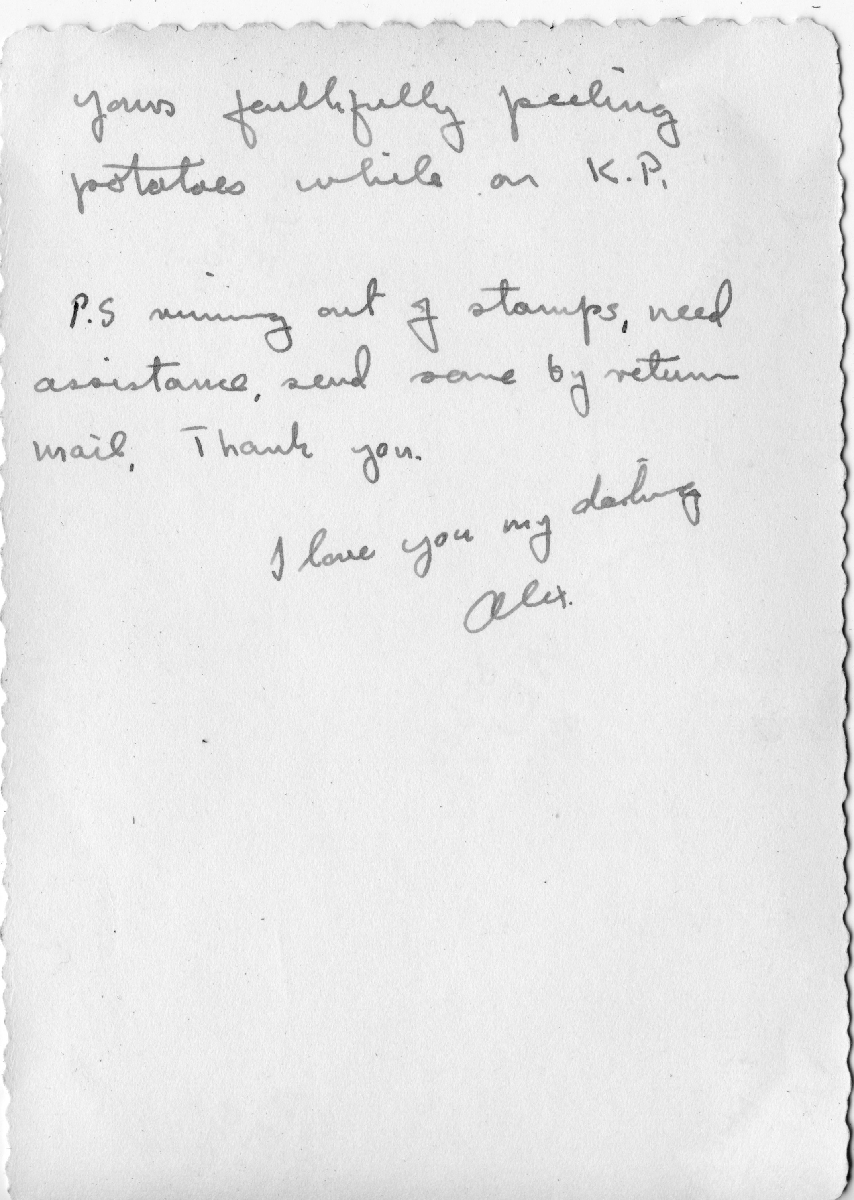 yours faithfully peeling
potatoes while on K.P.
P.S running out of stamps, need
assistance, send some by return
mail, Thank you.
I love you my darling
Alex.